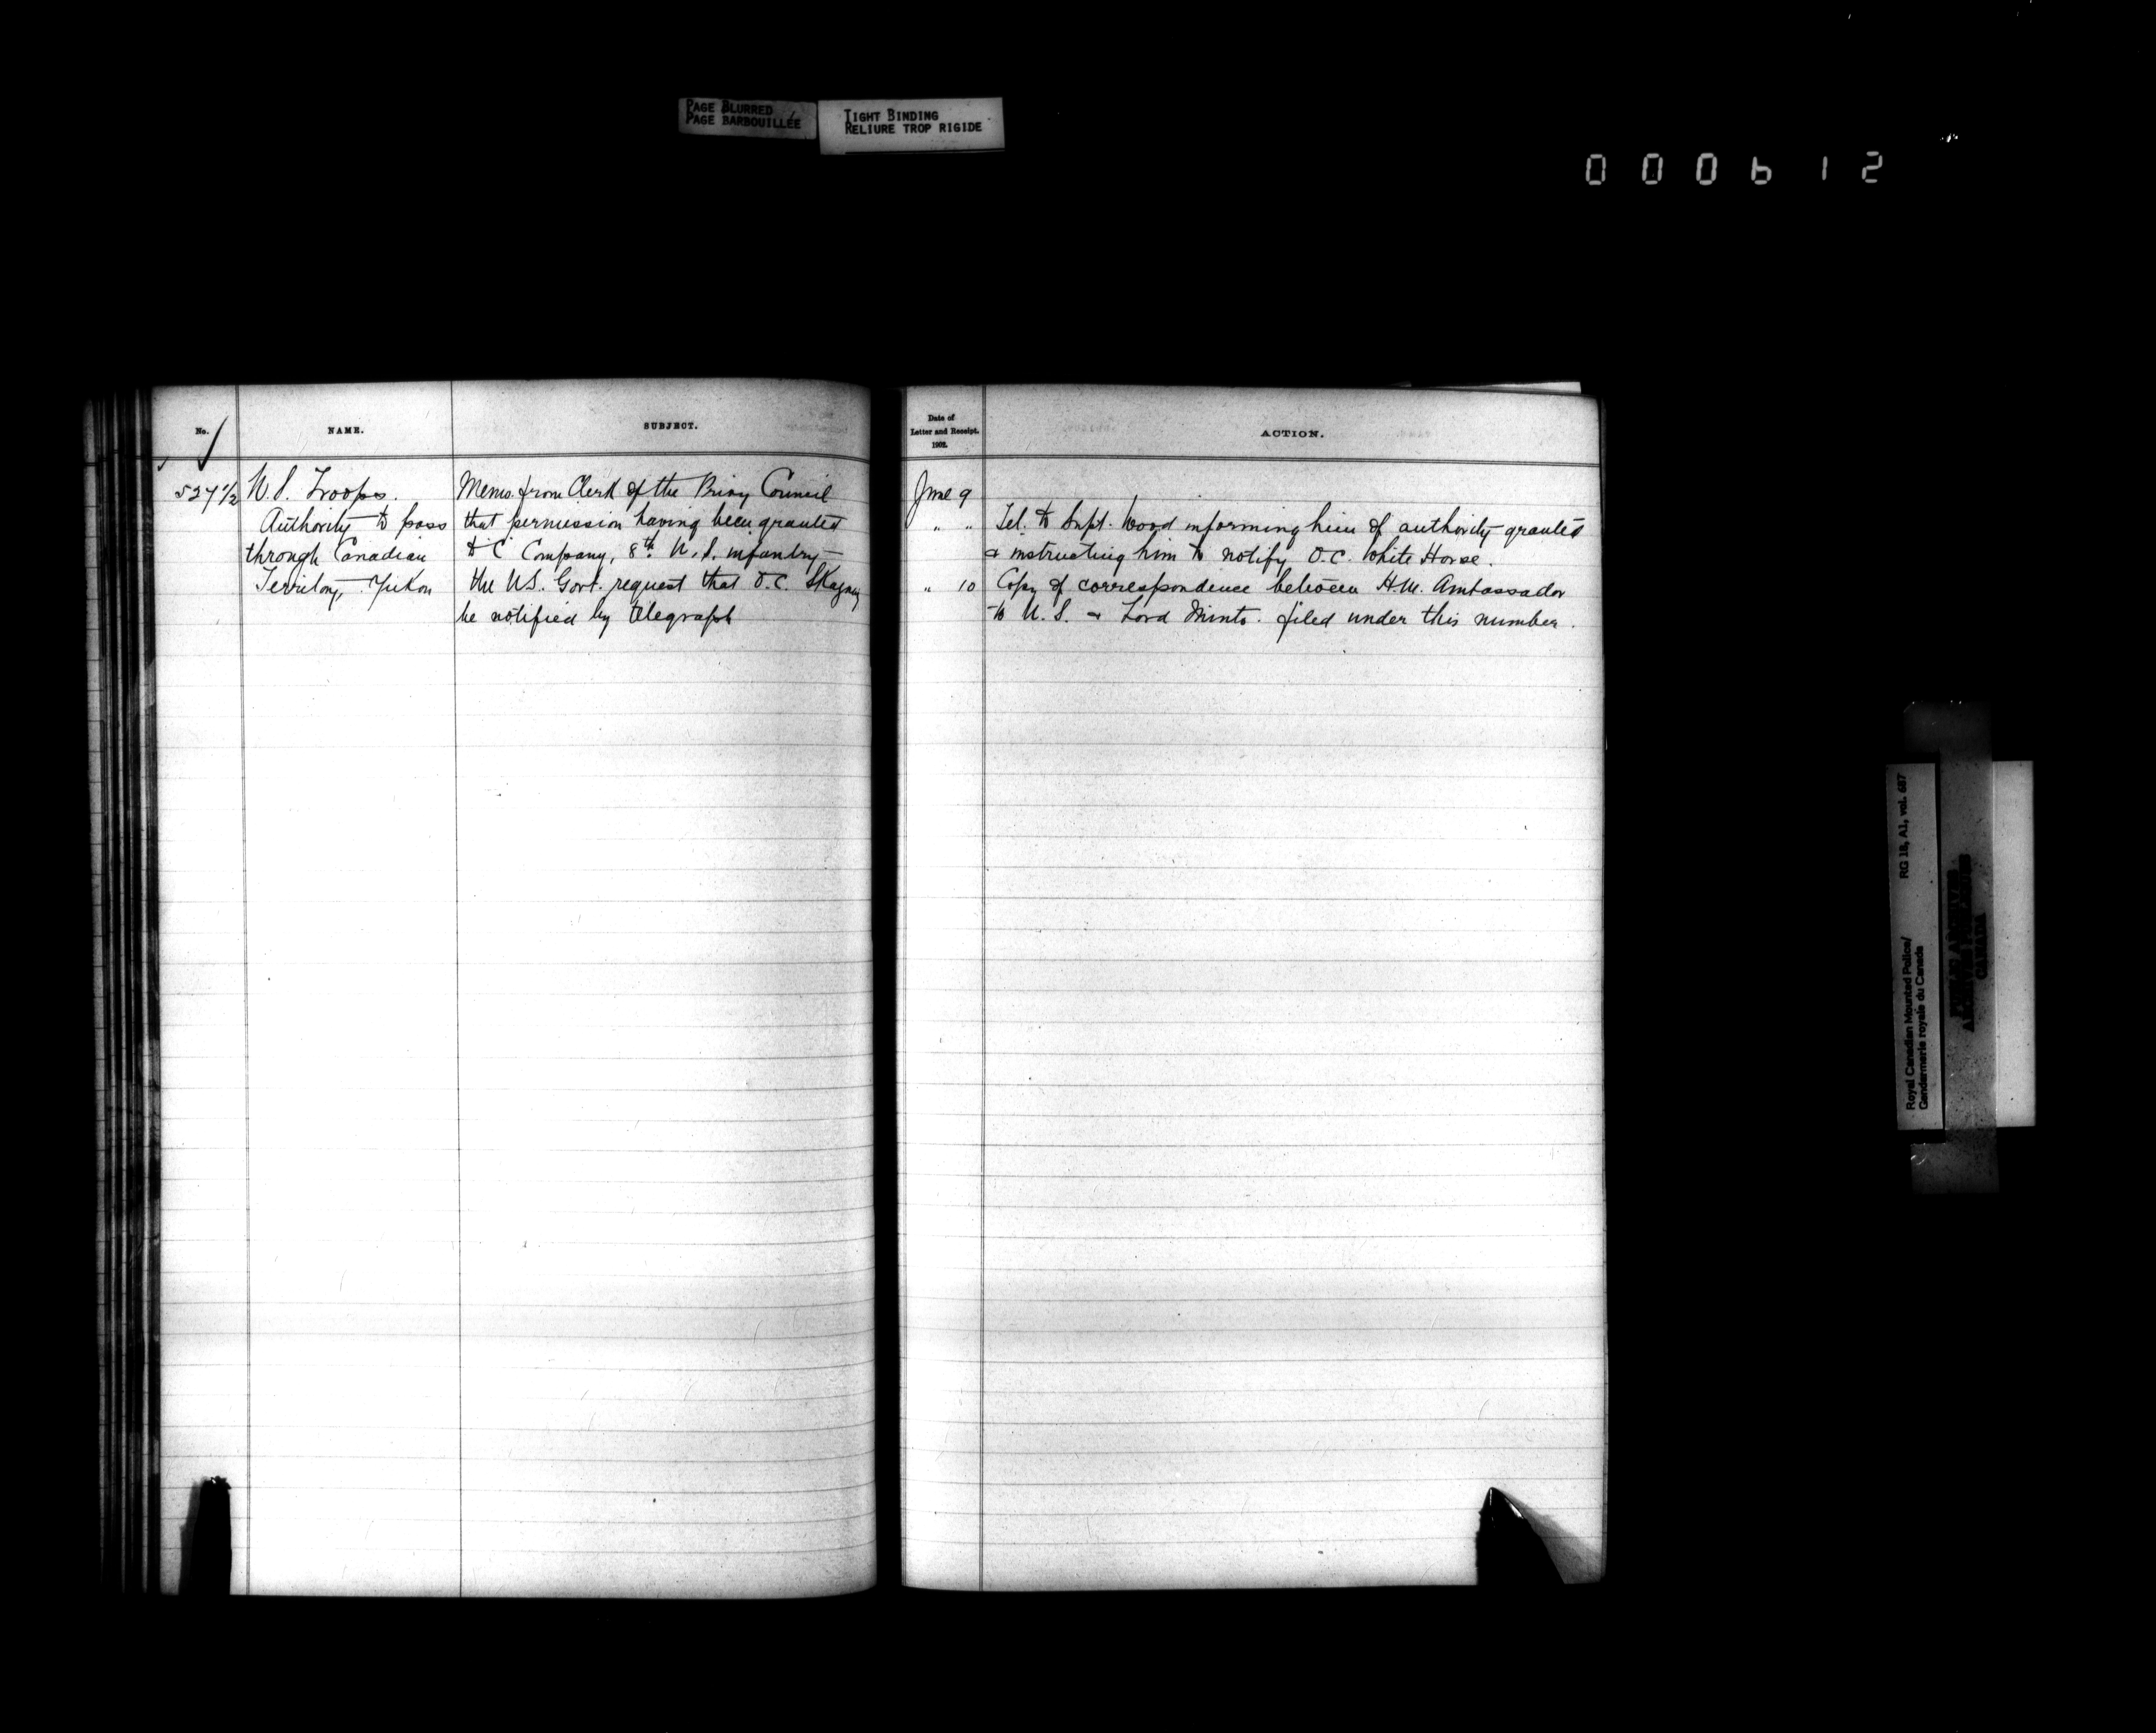 PAGE BLURRED
PAGE BARBOUILLÉE
TIGHT BINDING
RELIURE TROP RIGIDE
000612
No.
NAME.
SUBJECT.
527 1/2
U.S. Troops.
Authority to pass
through Canadian
Territory, Yukon
Memo. from Clerk of the Privy Council
that permission having been granted
to C Company, 8th U.S. infantry
the U.S. Govt. request that O.C. Skagway
be notified by telegraph
Date of
Letter and Receipt.
1902.
ACTION.
June 9
" " Tel. to Supt. Wood informing him of authority granted
& instructing him to notify O.C. White Horse.
" 10 Copy of correspondence between H.M. Ambassador
to U.S. & Lord Minto. filed under this number.
Royal Canadian Mounted Police/ RG 18, A1, vol. 687
Gendarmerie royale du Canada
PUBLIC ARCHIVES
ARCHIVES PUBLIQUES
CANADA